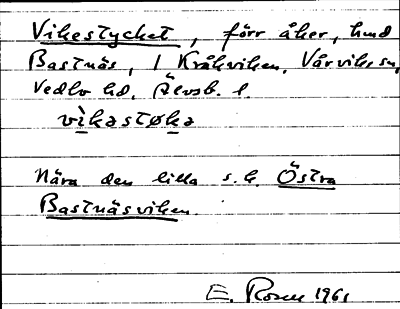 Vikestycket, förr åker, hmd
Bastnäs, i Kråkviken, Vårviks sn,
Vedbo hd, Älvsb. l.
vìkastøka
Nära den lilla s.k. Östra
Bastnäsviken.
E. Rosen 1961